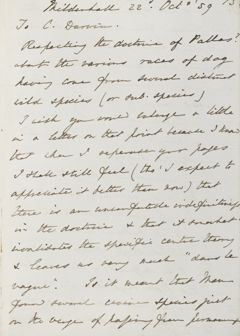 Mildenhall 22d. Octr. 59
To C. Darwin.
Respecting the doctrine of Pallas?
what the various races of dog
having come from several distinct
wild species (or sub. species)
I wish you would enlarge a little
in a letter on that point because I know
that when I reperuse your pages
I shall still feel (tho' I expect to
appreciate it better than now) that
there is an uncomfortable indefiniteness
in the doctrine & that it somewhat
invalidates the specific centre theory
& leaves us very much "dans le
vague". Is it meant that Man
found several canine species just
on the verge of passing from